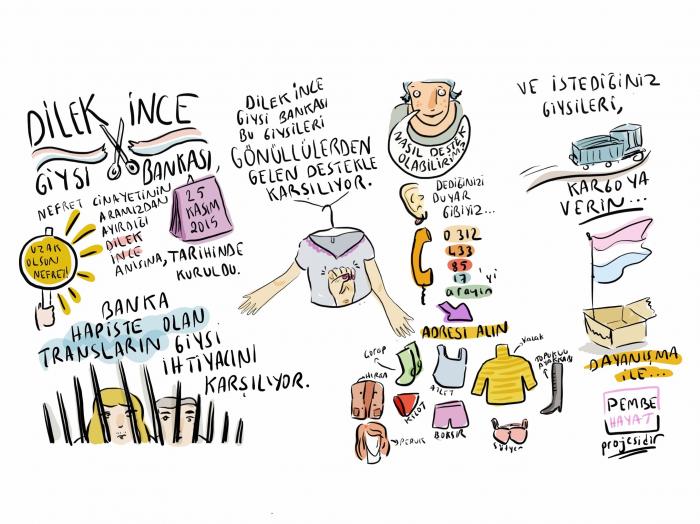 DİLEK İNCE
GİYSİ BANKASI,
NEFRET CİNAYETİNİN
ARAMIZDAN
AYIRDIĞI
DİLEK
İNCE
ANISINA, TARİHİNDE
KURULDU.
25
KASIM
2015
UZAK
OLSUN
NEFRET!
BANKA
HAPİSTE OLAN
TRANSLARIN GİYSİ
İHTİYACINI
KARŞILIYOR.
DİLEK İNCE
GİYSİ BANKASI
BU GİYSİLERİ
GÖNÜLLÜLERDEN
GELEN DESTEKLE
KARŞILIYOR.
NASIL DESTEK
OLABİLİRİM?
DEDİĞİNİZİ
DUYAR
GİBİYİZ...
0 312
433
85
17'yi
arayın
ADRESİ ALIN
Çorap
HIRKA
ATLET
Kazak
TOPUKLU
AYAKKABI
KİLOT
BOKSIR
PERUK
Sütyen
VE İSTEDİĞİNİZ
GİYSİLERİ,
KARGOYA
VERİN...
DAYANIŞMA
İLE...
PEMBE
HAYAT
projesidir